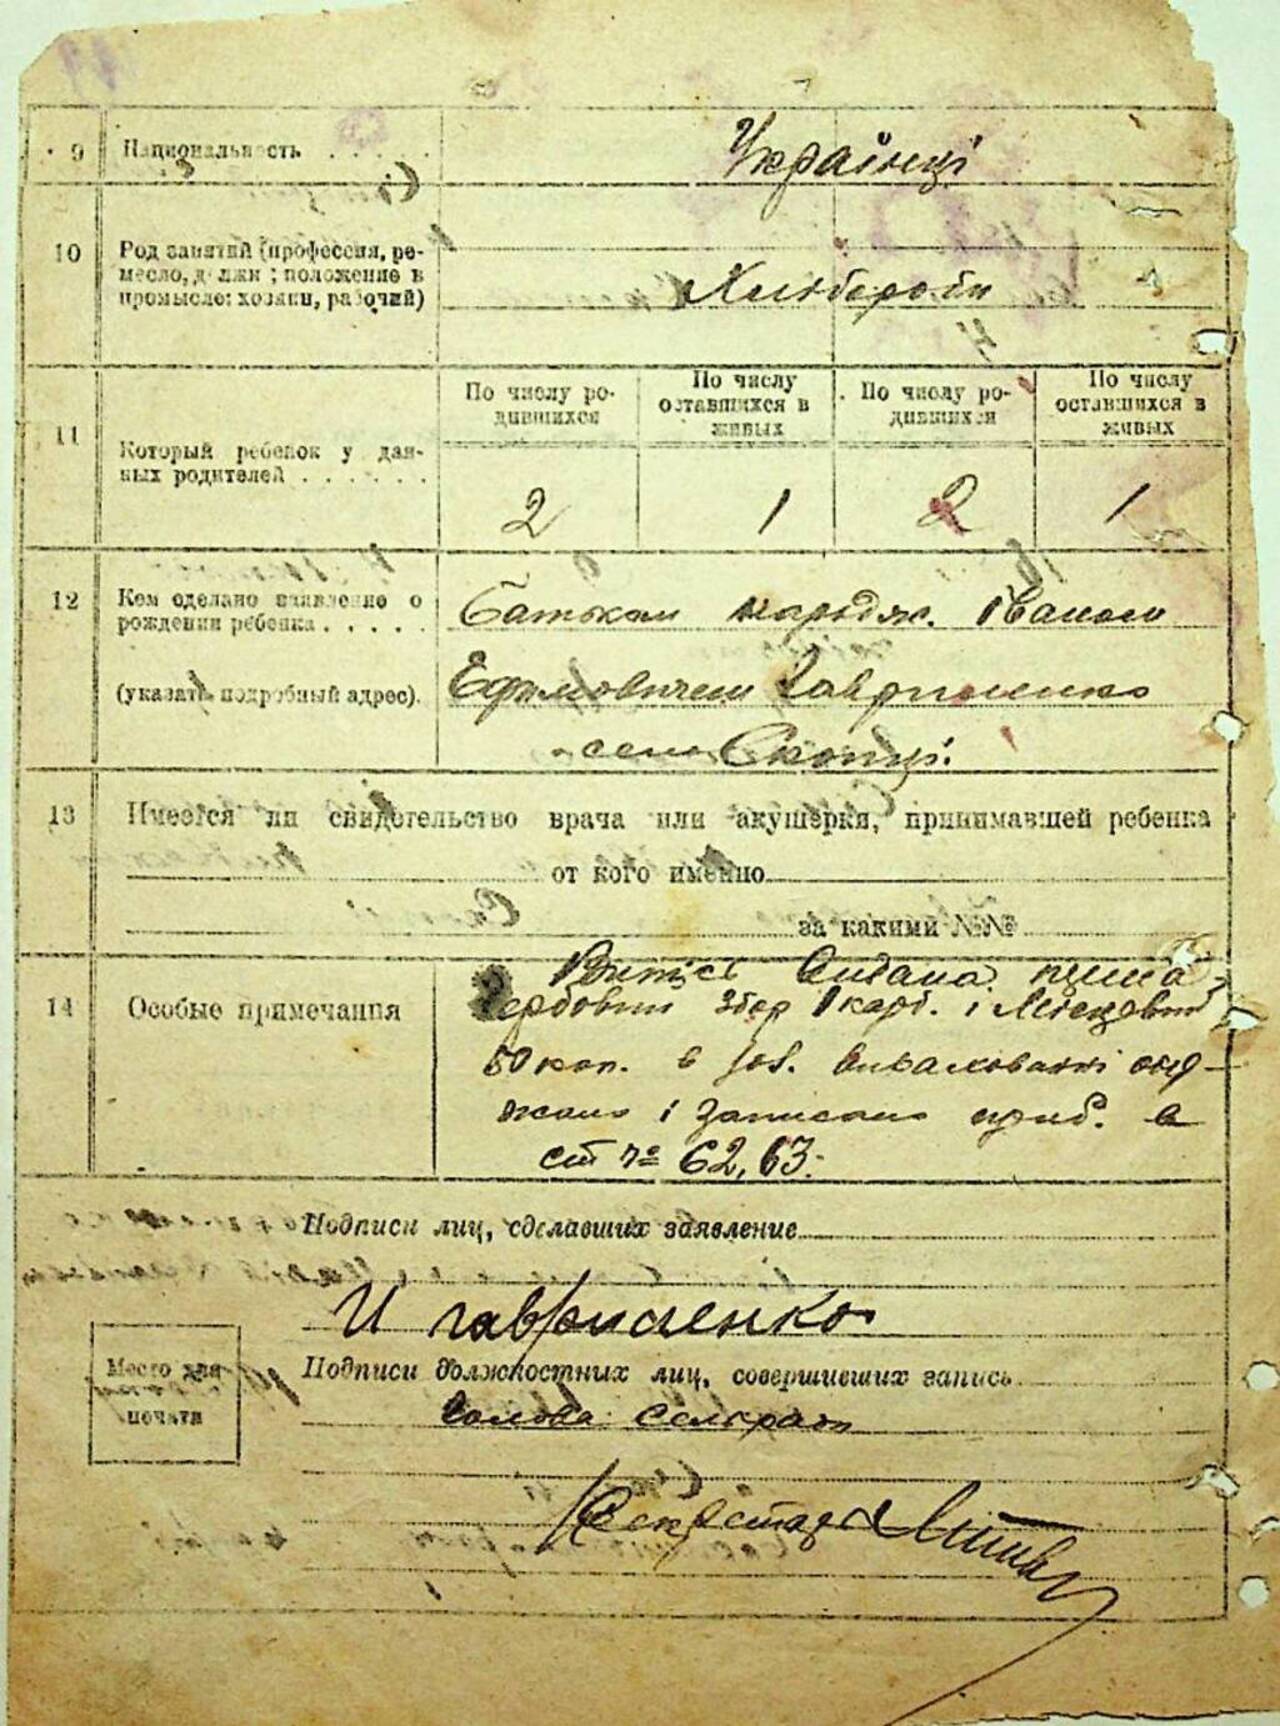 9 Национальность . . . . . Українці
10 Род занятий (профессия, ре-
месло, должн ; положение в
промысле: хозяин, рабочий)
Хлібороби
11 Который ребенок у дан-
ных родителей . . . . . .
По числу ро-
дившихся
По числу
оставшихся в
живых
По числу ро-
дившихся
По числу
оставшихся в
живых
2 1 2 1
12 Кем сделано заявление о
рождении ребенка . . . . .
(указать подробный адрес).
Батьком народж. Іваном
Ефимовичем Гавриленко
село Скопці.
13 Имеется ли свидетельство врача или акушерки, принимавшей ребенка
от кого именно
за какими №№
14 Особые примечания
Витіс видана
Гербовий збор 1 карб. і Місцевий
50 коп. в
і записано в
ст № 62, 63.
Подписи лиц, сделавших заявление
И гавриленко
Место для
печати
Подписи должностных лиц, совершивших запись
Голова сельради
Секретарь